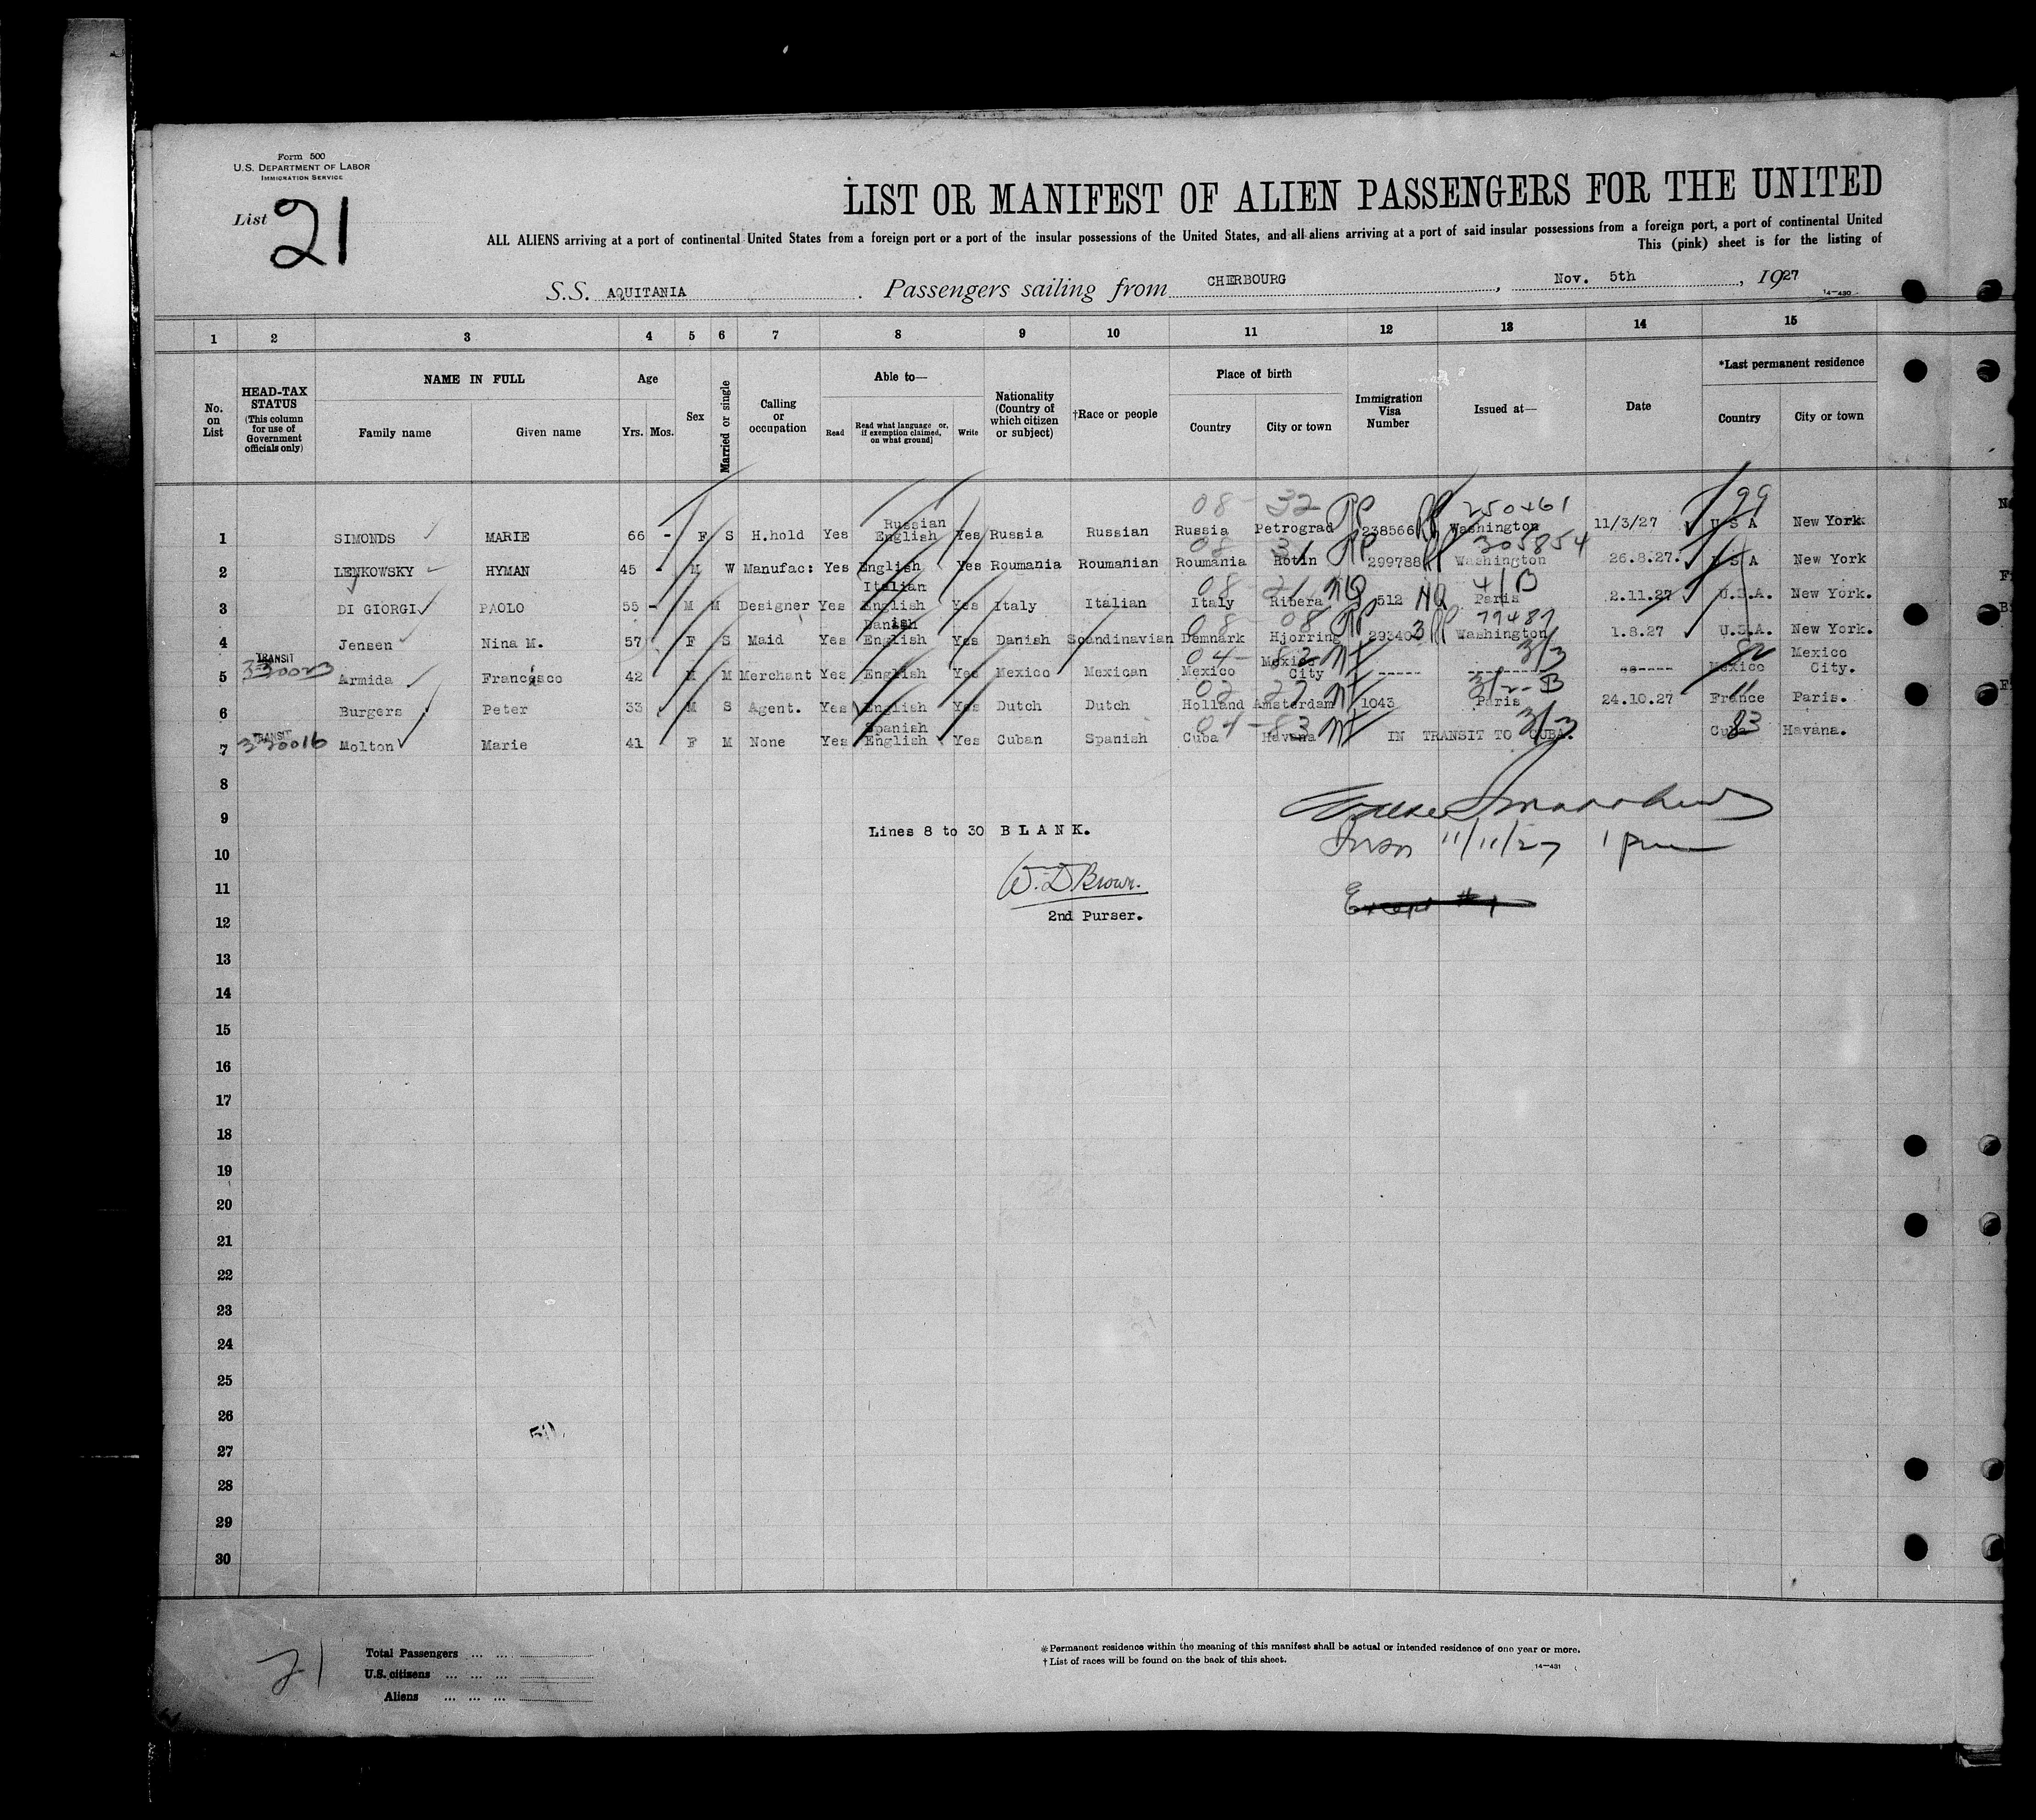 Form 500
U.S. DEPARTMENT OF LABOR
IMMIGRATION SERVICE
List 21
LIST OR MANIFEST OF ALIEN PASSENGERS FOR THE UNITED
ALL ALIENS arriving at a port of continental United States from a foreign port or a port of the insular possessions of the United States, and all aliens arriving at a port of said insular possessions from a foreign port, a port of continental United
This (pink) sheet is for the listing of
S.S. AQUITANIA. Passengers sailing from CHERBOURG, Nov. 5th, 1927
14—430
1 2 3 4 5 6 7 8 9 10 11 12 13 14 15
No. on List
HEAD-TAX STATUS (This column for use of Government officials only)
NAME IN FULL
Family name Given name
Age
Yrs. Mos.
Sex
Married or single
Calling or occupation
Able to—
Read Read what language or, if exemption claimed, on what ground) Write
Nationality (Country of which citizen or subject)
†Race or people
Place of birth
Country City or town
Immigration Visa Number
Issued at—
Date
*Last permanent residence
Country City or town
08 - 32 PP 250461 99
1 SIMONDS MARIE 66 - F S H.hold Yes Russian English Yes Russia Russian Russia Petrograd 238566 Washington 11/3/27 U S A New York
08 - 31 PP 305854
2 LENKOWSKY HYMAN 45 - M W Manufac: Yes English Yes Roumania Roumanian Roumania Rotin 299788 Washington 26.8.27. U S A New York
08 - 21 NQ 4/B
3 DI GIORGI PAOLO 55 - M M Designer Yes Italian English Yes Italy Italian Italy Ribera 512 NQ Paris 2.11.27 U.S.A. New York.
08 08 PP 79487
4 Jensen Nina M. 57 F S Maid Yes Danish English Yes Danish Scandinavian Demnark Hjorring 293403 Washington 1.8.27 U.S.A. New York.
TRANSIT 04 - 82 3/3 82
5 330023 Armida Francesco 42 M M Merchant Yes English Yes Mexico Mexican Mexico Mexico City ----- -------- ------- Mexico Mexico City.
02 - 27 3/2-B 11
6 Burgers Peter 33 M S Agent. Yes English Yes Dutch Dutch Holland Amsterdam 1043 Paris 24.10.27 France Paris.
TRANSIT 04 - 83 3/3 83
7 330016 Molton Marie 41 F M None Yes Spanish English Yes Cuban Spanish Cuba Havana IN TRANSIT TO CUBA. Cuba Havana.
8
9
Lines 8 to 30 B L A N K.
10
11/11/27 1 pm
11
W. D Brown.
Except #1
12
2nd Purser.
13
14
15
16
17
18
19
20
21
22
23
24
25
26
27
28
29
30
21
Total Passengers ... ...
U.S. citizens ... ... ...
Aliens ... ... ...
*Permanent residence within the meaning of this manifest shall be actual or intended residence of one year or more.
†List of races will be found on the back of this sheet.
14—431